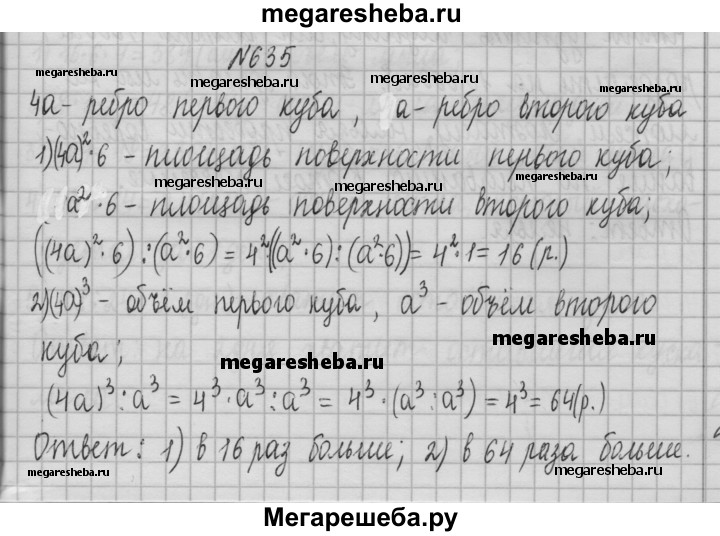 megaresheba.ru
№635
megaresheba.ru megaresheba.ru megaresheba.ru
4а - ребро первого куба, а - ребро второго куба
1) (4а)²·6 - площадь поверхности первого куба;
megaresheba.ru megaresheba.ru megaresheba.ru
а²·6 - площадь поверхности второго куба;
((4а)²·6):(а²·6) = 4²·((а²·6):(а²·6)) = 4²·1 = 16 (р.)
2) (4а)³ - объём первого куба, а³ - объём второго
megaresheba.ru
куба;
megaresheba.ru
(4а)³:а³ = 4³·а³:а³ = 4³·(а³:а³) = 4³ = 64(р.)
Ответ: 1) в 16 раз больше; 2) в 64 раза больше.
megaresheba.ru megaresheba.ru megaresheba.ru
Мегарешеба.ру